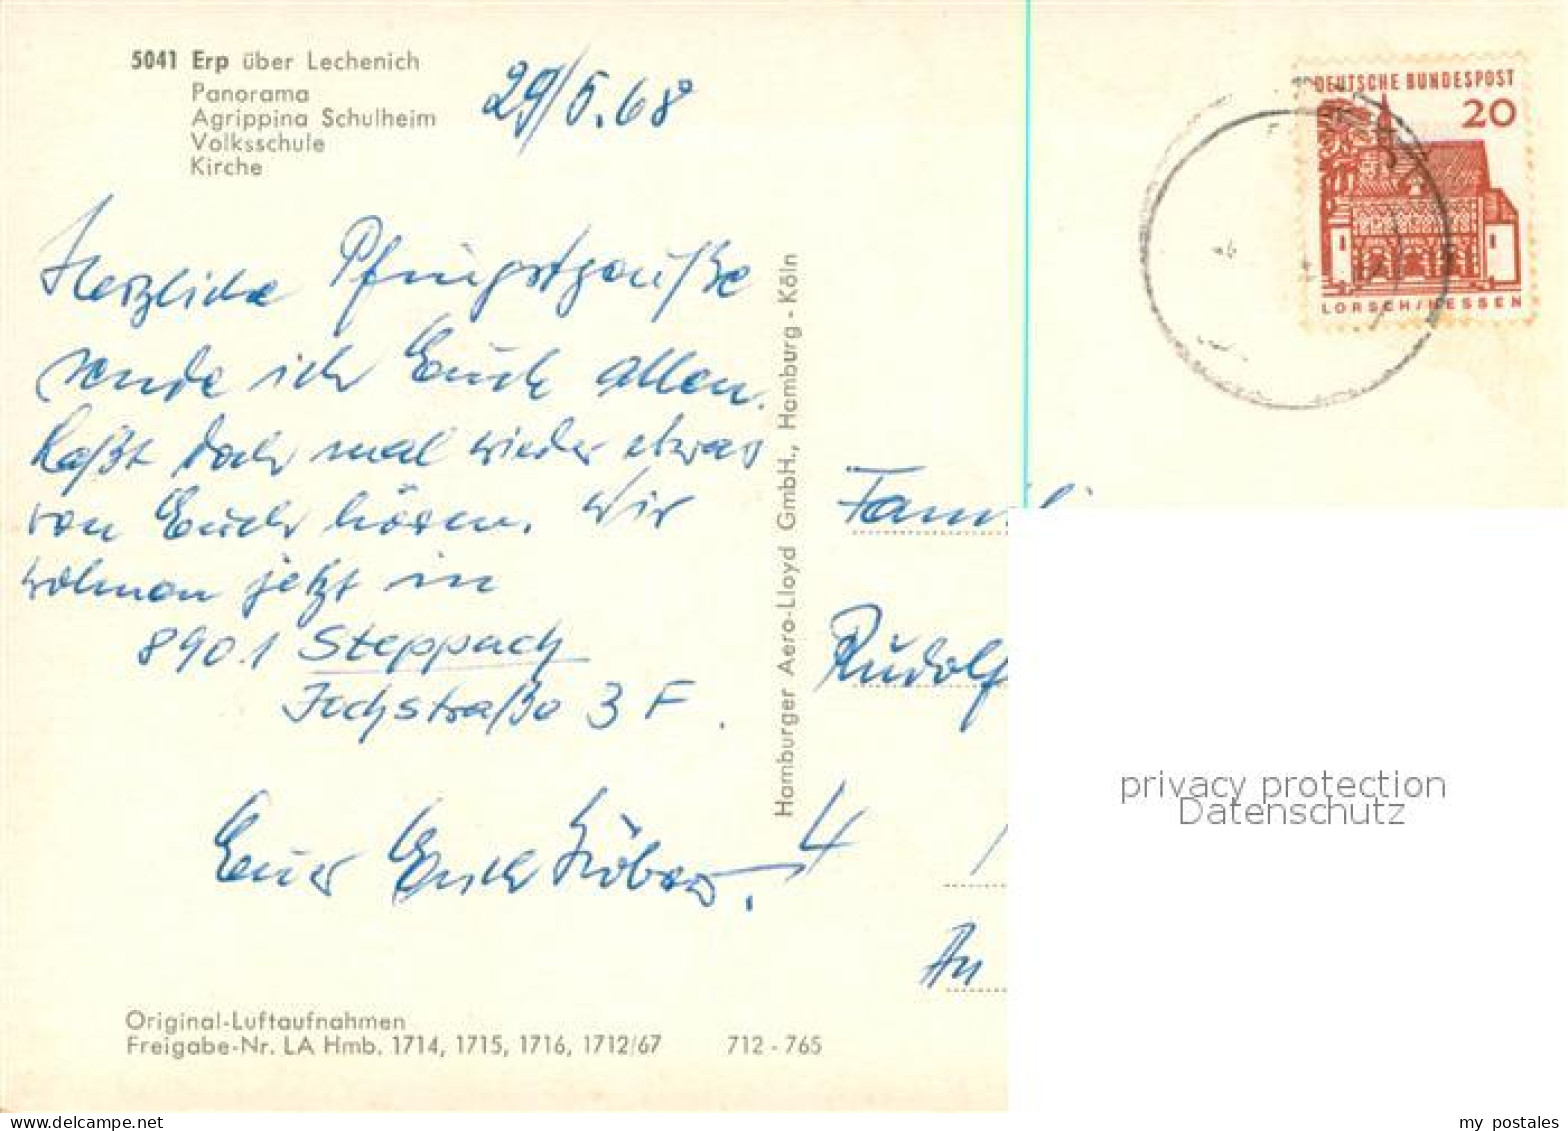 5041 Erp über Lechenich
Panorama
Agrippina Schulheim
Volksschule
Kirche
29/5.68
Herzliche Pfingstgrüße
sende ich Euch allen.
Laßt doch mal wieder etwas
von Euch hören. Wir
wohnen jetzt in
8901 Steppach
straße 3 F.
Euer
Original-Luftaufnahmen
Freigabe-Nr. LA Hmb. 1714, 1715, 1716, 1712/67 712 - 765
Hamburger Aero-Lloyd GmbH., Hamburg - Köln
DEUTSCHE BUNDESPOST
20
LORSCH/HESSEN
Famili
Rudolf
4
An
privacy protection
Datenschutz
my postales